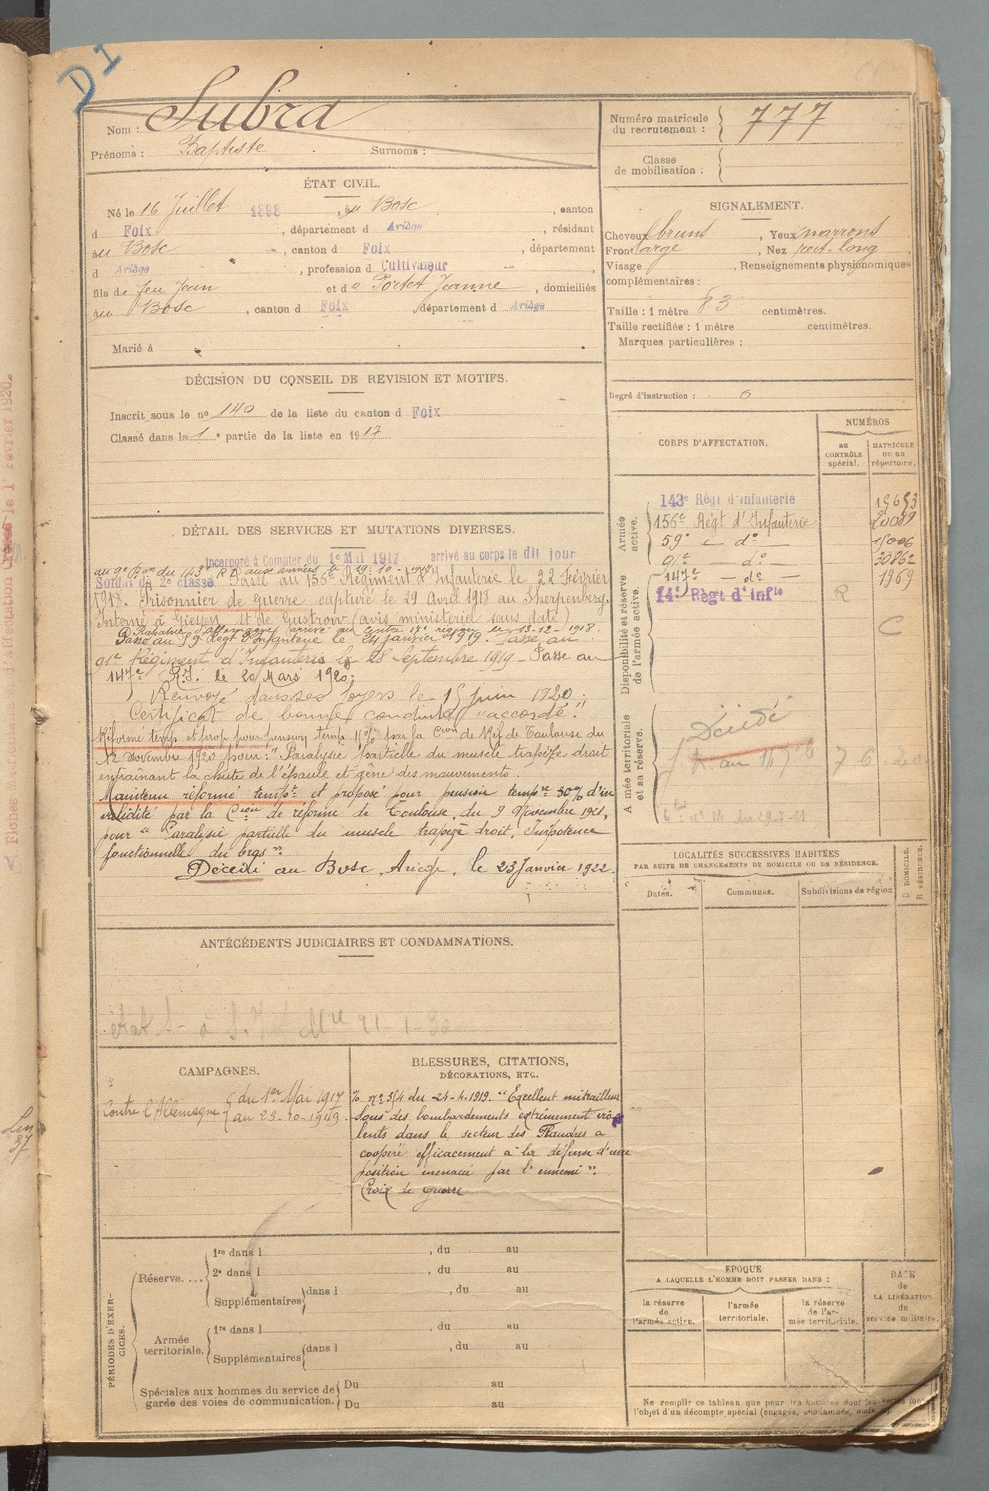 D1
Nom : Subra
Prénoms : Baptiste Surnoms :
Numéro matricule
du recrutement : 777
Classe
de mobilisation :
ÉTAT CIVIL.
Né le 16 Juillet 1898, au Bosc, canton
d Foix, département d Ariège, résidant
au Bosc, canton d Foix, département
d Ariège, profession d Cultivateur
fils de feu Jean et de Portet Jeanne, domiciliés
au Bosc, canton d Foix, département d Ariège
Marié à
SIGNALEMENT.
Cheveux bruns, Yeux marrons
Front large, Nez rect. long
Visage, Renseignements physionomiques
complémentaires :
Taille : 1 mètre 83 centimètres.
Taille rectifiée : 1 mètre centimètres.
Marques particulières :
Degré d'instruction : 0
DÉCISION DU CONSEIL DE REVISION ET MOTIFS.
Inscrit sous le nº 140 de la liste du canton d Foix
Classé dans la 1e partie de la liste en 1917
DÉTAIL DES SERVICES ET MUTATIONS DIVERSES.
Incorporé à Compter du 1er Mai 1917 arrivé au corps le dit jour
Soldat de 2e classe. Passé au 156e Régiment d'Infanterie le 22 Février
1918. Prisonnier de guerre capturé le 29 Avril 1918 au Sherpenberg.
Interné à Giessen et de Gustrow (avis ministériel sans date)
Rapatrié d'Allemagne arrivé au le 13-12-1918.
Passé au 59e Régt d'Infanterie le Janvier 1919. Passé au
91e Régiment d'Infanterie le 28 Septembre 1919 - Passé au
147e R.I. le 20 Mars 1920;
Renvoyé dans ses foyers le 15 Juin 1920;
Certificat de bonne conduite "accordé".
Réformé temp. et prop. pour pension temp. par la Cion de Réf. de Toulouse du
12 novembre 1920 pour : "Paralysie partielle du muscle trapèze droit
entrainant la chute de l'épaule et gêne des mouvements.
Maintenu réformé tempt et proposé pour pension tempre 30% d'in
validité par la Cion de réforme de Toulouse, du 9 Novembre 1921,
pour "Paralysie partielle du muscle trapèze droit. Impotence
fonctionnelle du bras".
Décédé au Bosc, Ariège, le 23 Janvier 1922.
CORPS D'AFFECTATION.
NUMÉROS
au
CONTRÔLE
spécial.
MATRICULE
ou au
répertoire.
Armée
active.
143e Régt d'Infanterie
156e Régt d'Infanterie
59e - do -
91e - do -
147e - do - 1969
14e Régt d'Infie R
C
Disponibilité et réserve
de l'armée active.
Armée territoriale
et sa réserve.
Décédé
LOCALITÉS SUCCESSIVES HABITÉES
PAR SUITE DE CHANGEMENTS DE DOMICILE OU DE RÉSIDENCE.
Dates.
Communes.
Subdivisions de région
D DOMICILE.
R RÉSIDENCE.
ANTÉCÉDENTS JUDICIAIRES ET CONDAMNATIONS.
CAMPAGNES.
Contre l'Allemagne du 1er Mai 1917
au 23-10-1919.
BLESSURES, CITATIONS,
DÉCORATIONS, ETC.
du 24-4-1919. "Excellent mitrailleur
Sous des bombardements extrêmement vio
lents dans le secteur des Flandres a
coopéré efficacement à la défense d'une
position menacée par l'ennemi".
Croix de guerre
PÉRIODES D'EXER-
CICES.
Réserve....
1re dans l, du au
2e dans l, du au
Supplémentaires dans l, du au
Armée
territoriale.
1re dans l, du au
Supplémentaires dans l, du au
Spéciales aux hommes du service de
garde des voies de communication.
Du au
Du au
EPOQUE
A LAQUELLE L'HOMME DOIT PASSER DANS :
la réserve
de
l'armée active.
l'armée
territoriale.
la réserve
de l'ar-
mée territoriale.
DATE
de
LA LIBÉRATION
du
service militaire.